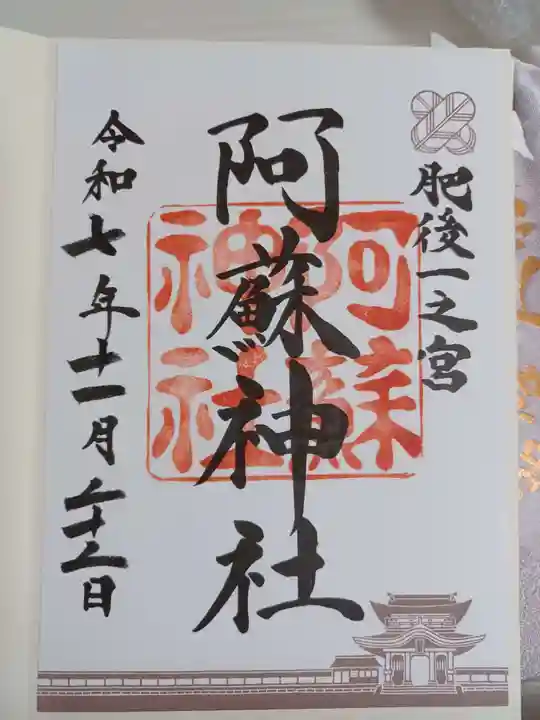 肥後一之宮
阿蘇神社
阿蘇
神社
令和七年十一月二十二日